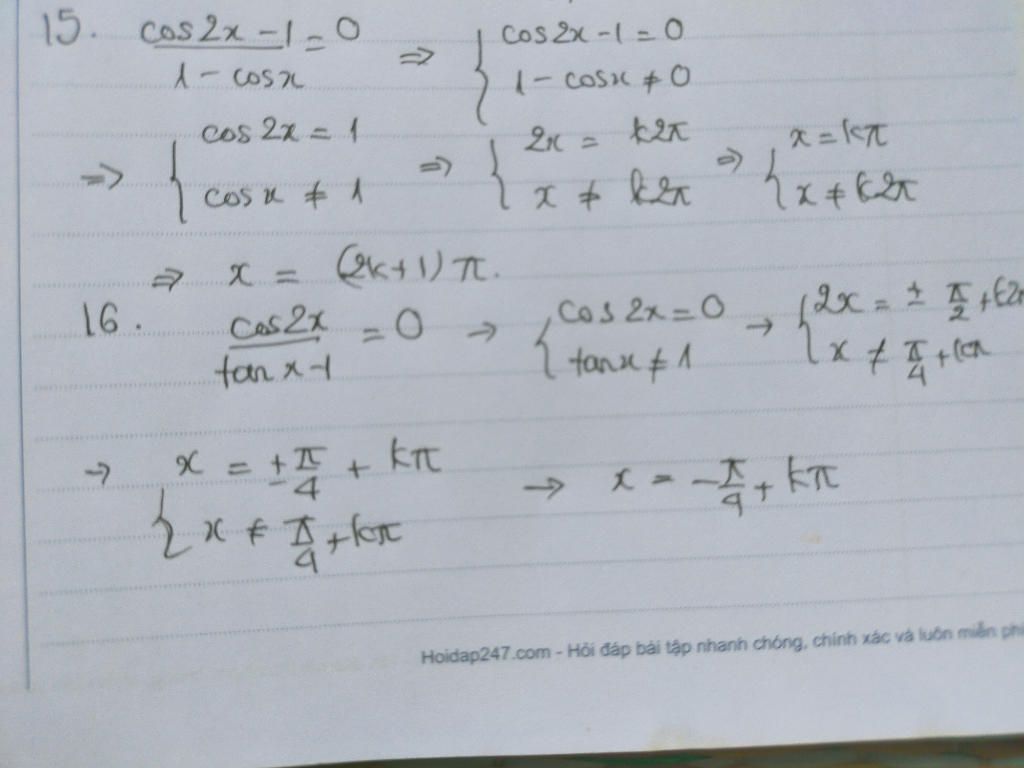 15. (cos2x - 1)/(1 - cosx) = 0 => { cos2x - 1 = 0 ; 1 - cosx ≠ 0
=> { cos2x = 1 ; cosx ≠ 1 => { 2x = k2π ; x ≠ k2π => { x = kπ ; x ≠ k2π
=> x = (2k+1)π.
16. cos2x/(tanx - 1) = 0 → { cos2x = 0 ; tanx ≠ 1 → { 2x = ± π/2 + k2π ; x ≠ π/4 + kπ
→ { x = ± π/4 + kπ ; x ≠ π/4 + kπ → x = -π/4 + kπ
Hoidap247.com - Hỏi đáp bài tập nhanh chóng, chính xác và luôn miễn phí